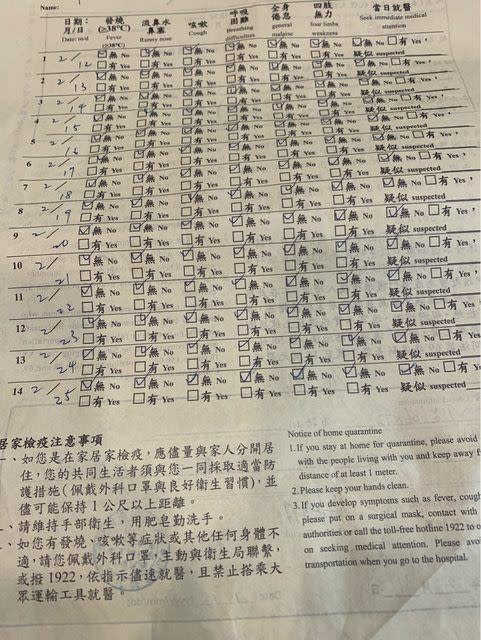 Name:
日期：月/日 Date: m/d 發燒 (≥38°C) Fever (≥38°C) 流鼻水 鼻塞 Runny nose 咳嗽 Cough 呼吸困難 Breathing difficulties 全身倦怠 general malaise 四肢無力 four limbs weakness 當日就醫 Seek immediate medical attention
1 2/12 無 No 無 No 無 No 無 No 無 No 無 No 無 No 有 Yes,
有 Yes 有 Yes 有 Yes 有 Yes 有 Yes 有 Yes 疑似 suspected
2 2/13 無 No 無 No 無 No 無 No 無 No 無 No 無 No 有 Yes,
有 Yes 有 Yes 有 Yes 有 Yes 有 Yes 有 Yes 疑似 suspected
3 2/14 無 No 無 No 無 No 無 No 無 No 無 No 無 No 有 Yes,
有 Yes 有 Yes 有 Yes 有 Yes 有 Yes 有 Yes 疑似 suspected
4 2/15 無 No 無 No 無 No 無 No 無 No 無 No 無 No 有 Yes,
有 Yes 有 Yes 有 Yes 有 Yes 有 Yes 有 Yes 疑似 suspected
5 2/16 無 No 無 No 無 No 無 No 無 No 無 No 無 No 有 Yes,
有 Yes 有 Yes 有 Yes 有 Yes 有 Yes 有 Yes 疑似 suspected
6 2/17 無 No 無 No 無 No 無 No 無 No 無 No 無 No 有 Yes,
有 Yes 有 Yes 有 Yes 有 Yes 有 Yes 有 Yes 疑似 suspected
7 2/18 無 No 無 No 無 No 無 No 無 No 無 No 無 No 有 Yes,
有 Yes 有 Yes 有 Yes 有 Yes 有 Yes 有 Yes 疑似 suspected
8 2/19 無 No 無 No 無 No 無 No 無 No 無 No 無 No 有 Yes,
有 Yes 有 Yes 有 Yes 有 Yes 有 Yes 有 Yes 疑似 suspected
9 2/20 無 No 無 No 無 No 無 No 無 No 無 No 無 No 有 Yes,
有 Yes 有 Yes 有 Yes 有 Yes 有 Yes 有 Yes 疑似 suspected
10 2/21 無 No 無 No 無 No 無 No 無 No 無 No 無 No 有 Yes,
有 Yes 有 Yes 有 Yes 有 Yes 有 Yes 有 Yes 疑似 suspected
11 2/22 無 No 無 No 無 No 無 No 無 No 無 No 無 No 有 Yes,
有 Yes 有 Yes 有 Yes 有 Yes 有 Yes 有 Yes 疑似 suspected
12 2/23 無 No 無 No 無 No 無 No 無 No 無 No 無 No 有 Yes,
有 Yes 有 Yes 有 Yes 有 Yes 有 Yes 有 Yes 疑似 suspected
13 2/24 無 No 無 No 無 No 無 No 無 No 無 No 無 No 有 Yes,
有 Yes 有 Yes 有 Yes 有 Yes 有 Yes 有 Yes 疑似 suspected
14 2/25 無 No 無 No 無 No 無 No 無 No 無 No 無 No 有 Yes,
有 Yes 有 Yes 有 Yes 有 Yes 有 Yes 有 Yes 疑似 suspected
居家檢疫注意事項
、如您是在家居家檢疫，應儘量與家人分開居
住，您的共同生活者須與您一同採取適當防
護措施(佩戴外科口罩與良好衛生習慣)，並
儘可能保持1公尺以上距離。
、請維持手部衛生，用肥皂勤洗手。
、如您有發燒、咳嗽等症狀或其他任何身體不
適，請您佩戴外科口罩，主動與衛生局聯繫，
或撥1922，依指示儘速就醫，且禁止搭乘大
眾運輸工具就醫。
Notice of home quarantine
1.If you stay at home for quarantine, please avoid
with the people living with you and keep away f
distance of at least 1 meter.
2.Please keep your hands clean.
3.If you develop symptoms such as fever, cough
please put on a surgical mask, contact with
authorities or call the toll-free hotline 1922 to o
on seeking medical attention. Please avo
transportation when you go to the hospital.